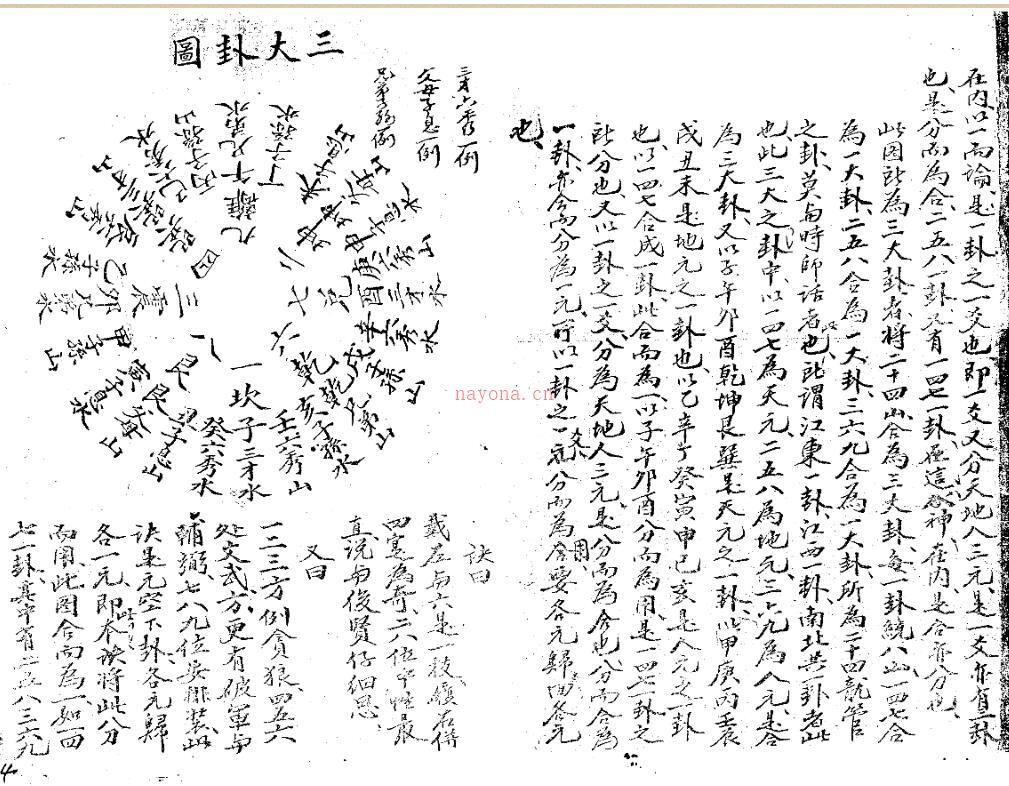 在内以一而論是一卦之一爻也即一爻又分天地人三元是一爻亦有三卦
也是分而為合二五八一卦又有一四七一卦這神在内是合亦分也
此图即為三大卦者將二十四山合為三大卦每一卦統八山一四七合
為一大卦二五八合為一大卦三六九合為一大卦所為二十四龍管
之卦莫與時師話者也此謂江東一卦江西一卦南北共一卦者此
也此三大之卦中以一四七為天元二五八為地元三六九為人元是合
為三大卦又以子午卯酉乾坤艮巽是天元之一卦以甲庚丙壬辰
戌丑未是地元之一卦也以乙辛丁癸寅申巳亥是人元之一卦
也以一四七合成一卦此合而為一以子午卯酉分而為用是一四七一卦之
所分也又以一卦之一爻分為天地人三元是分而為合也分而合為
一卦亦合而分為一元可以一卦之一爻分而為用要各元歸回各元
也
三大卦圖
三才六秀一例
父母子息一例
兄弟子孫一例
九離
午兄弟水
丁子孫水
八
七兌
庚六秀山
酉三才水
辛六秀水
六乾
戌子孫山
乾兄弟山
亥子孫水
一坎
壬六秀山
子三才水
癸六秀水
八艮
艮父母山
寅子息水
三震
甲子孫山
卯兄弟水
乙子孫水
四
丙子孫山
訣曰
戴九與六是一枝縱右得
四寔為奇二八位中性最
直説與後賢仔細思
又曰
一二三方例貪狼四五六
处文武方更有破軍與
輔弼七八九位安排裝此
訣是元空下卦各元歸
各一元即本訣將此分
而用此图合而為一如一四
七一卦其中有二五八三六九
4
nayona.cn